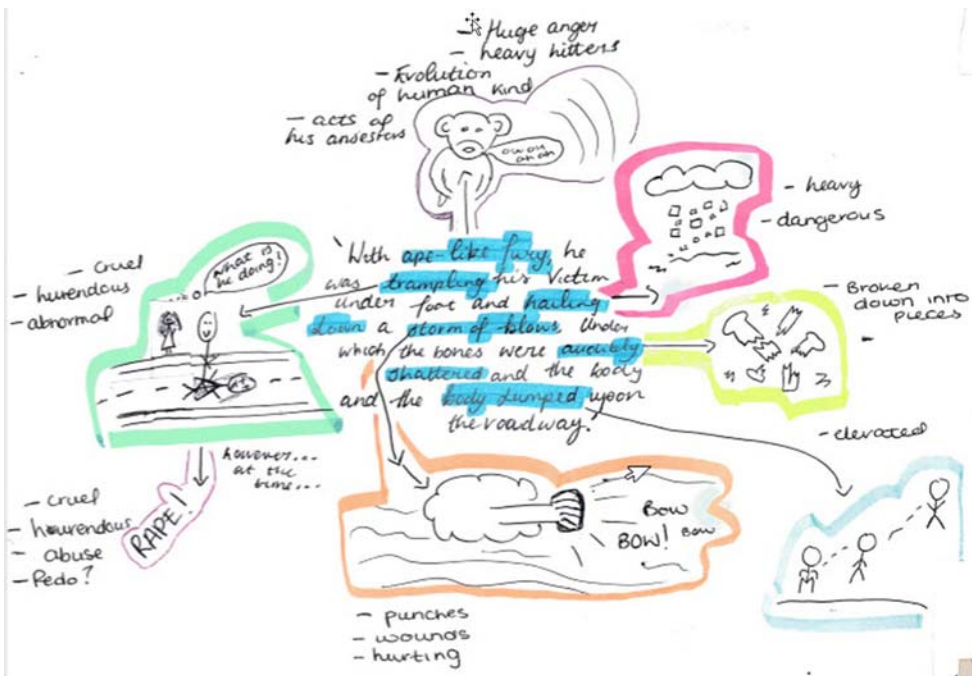 - Huge anger
- heavy hitters
- Evolution
of human kind
- acts of
his ansestors
owow
ah ah
- heavy
- dangerous
- cruel
- hurendous
- abnormal
What is
he doing!
'With ape-like fury, he
was trampling his victim
under foot and hailing
down a storm of blows, under
which the bones were audibly
shattered and the body
and the body jumped upon
the roadway.'
- Broken
down into
pieces
-
- elevated
however...
at the
time...
- cruel
- hourendous
- abuse
- Pedo?
RAPE!
BOW
BOW! BOW
- punches
- wounds
- hurting